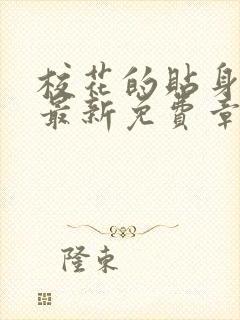 校花的贴身
最新免費章
隆東